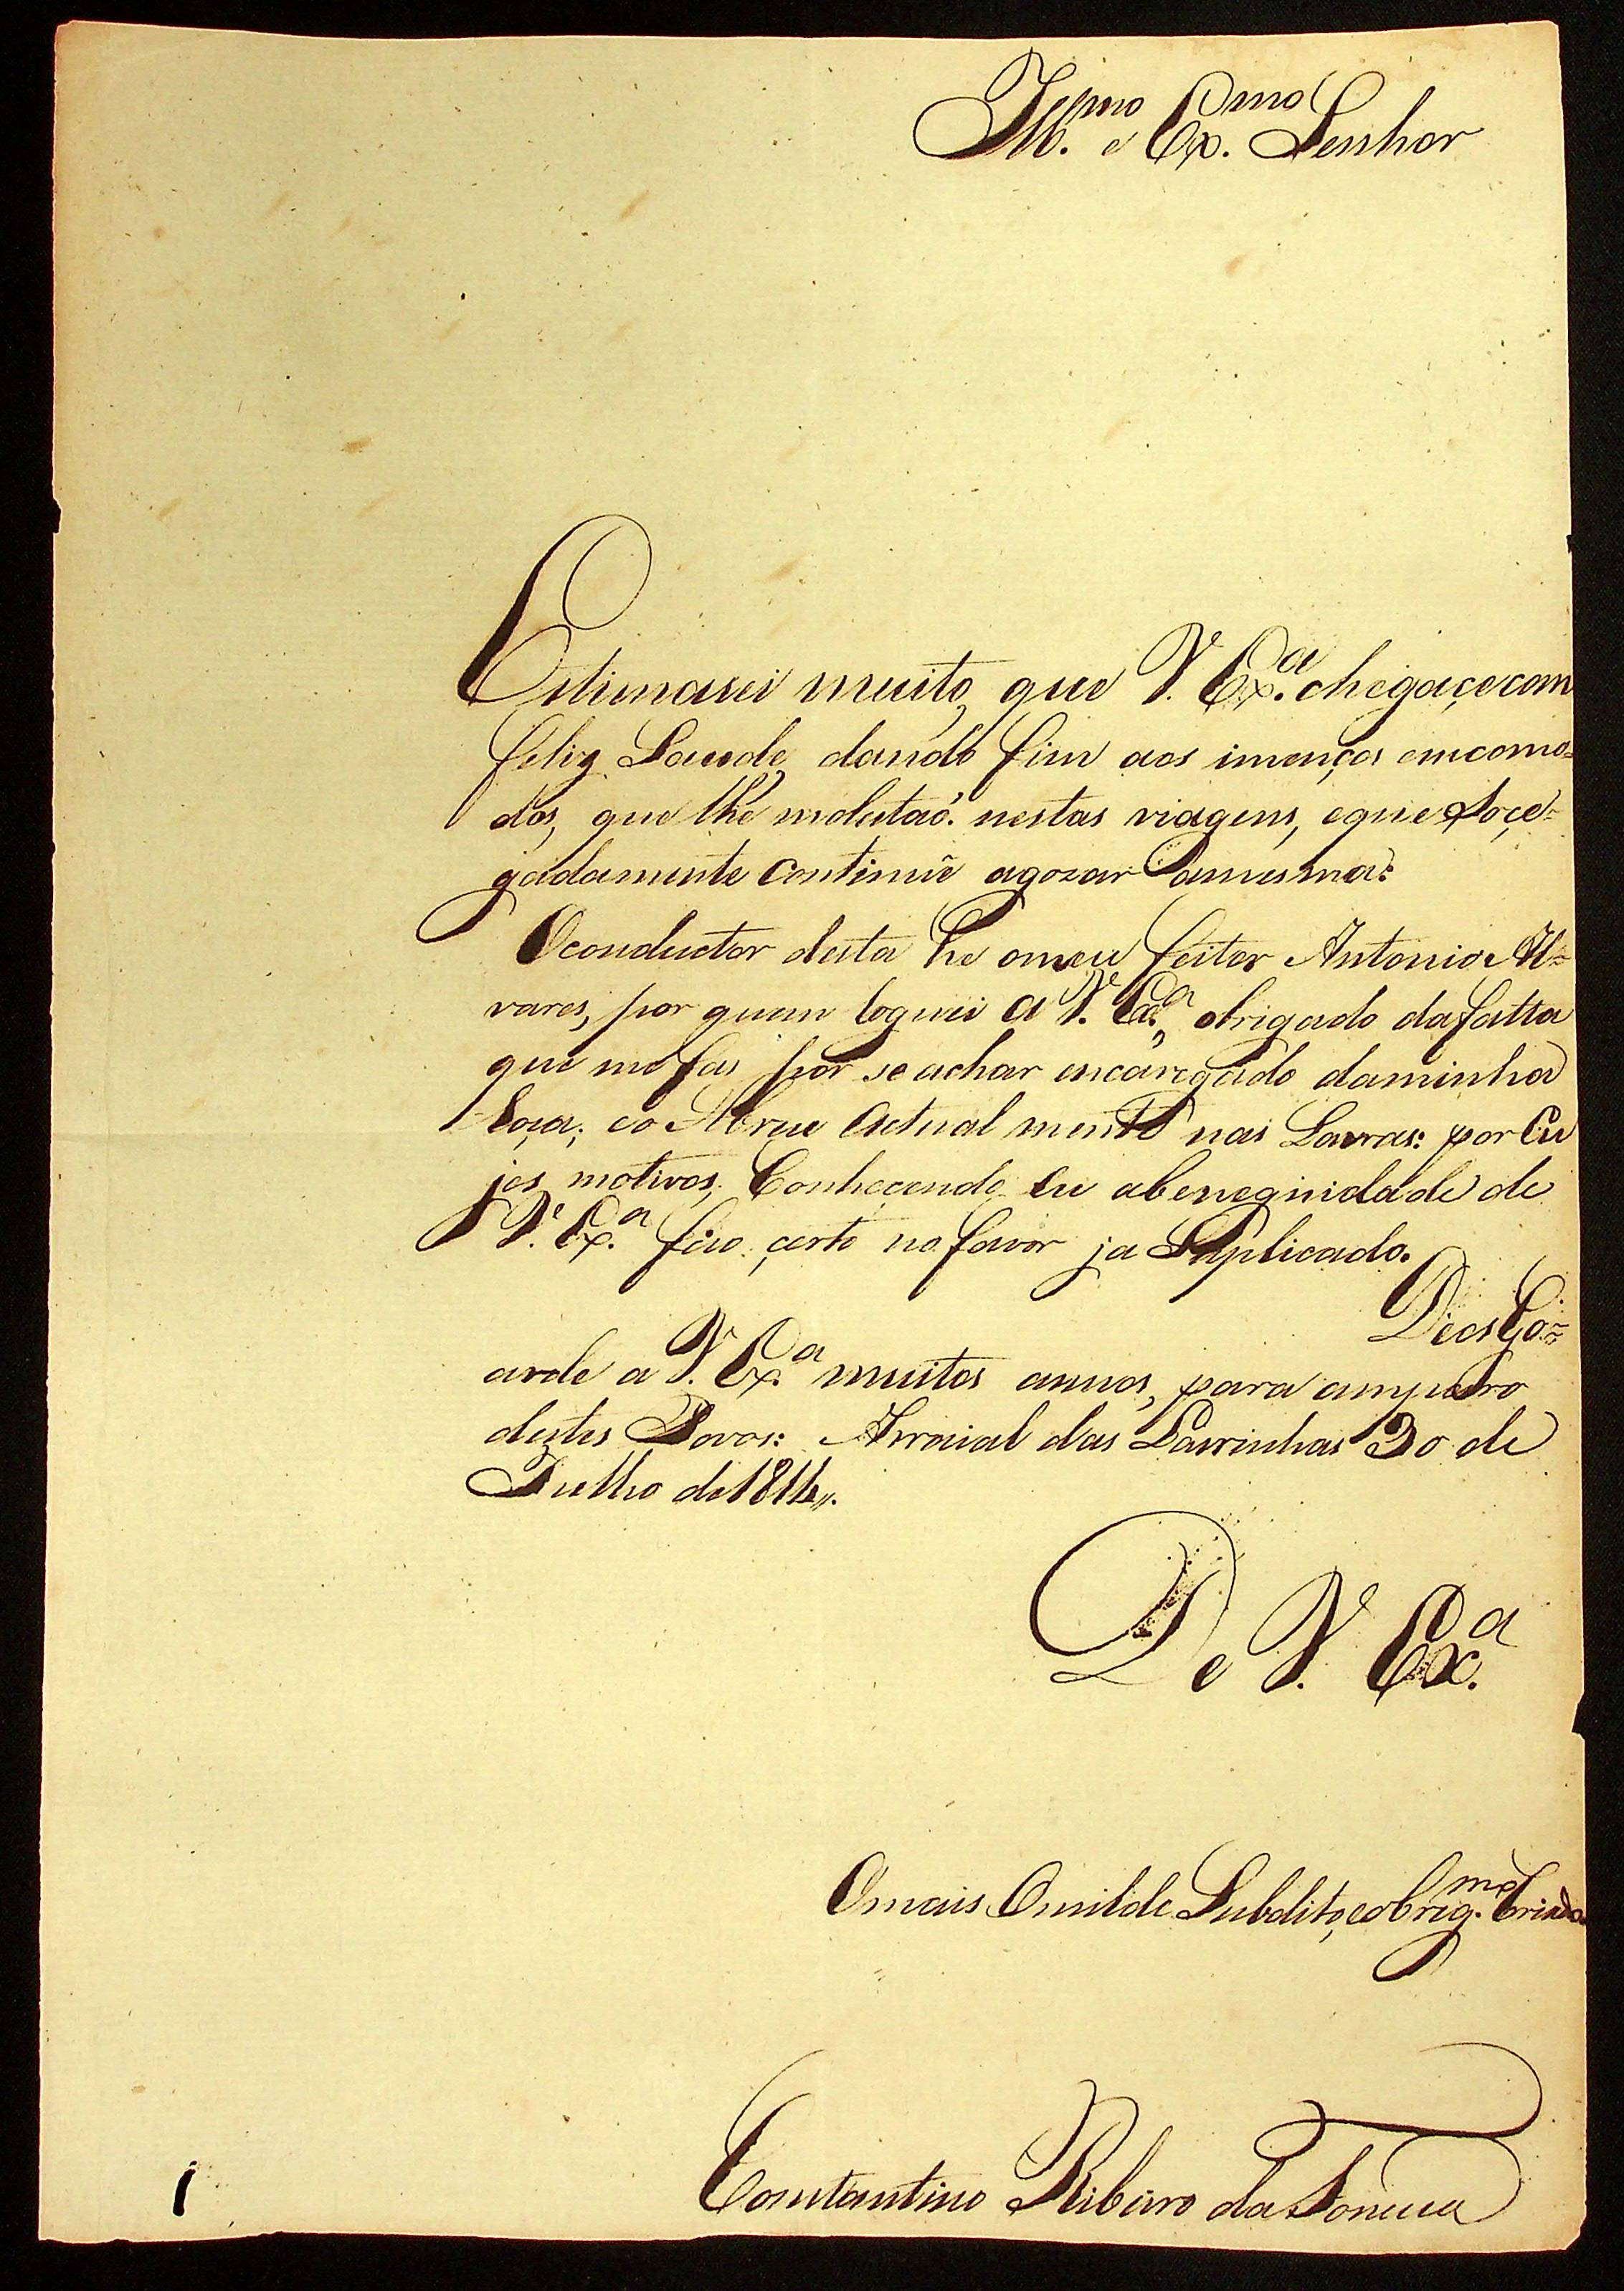 Ill.mo e Ex.mo Senhor
Estimarei muito, que V. Ex.a chegaçe com
feliz Saude, dando fim aos imenços emcomo-
dos, que lhe molestaó nestas viagens, eque Soçe-
gadamente Continuê agozar damesma:
Oconductor desta he omeu feitor Antonio Al-
vares, por quem Roguei a V. Ex.a, obrigado dafalta
que me fas por se achar encaregado daminha
Roça; eo Abreu Actual mente nas Lavras: por Cu
jos motivos, Conhecendo Eu abenegnidade de
V. Ex.a fico certo no favor ja Suplicado.
Deos Go-
arde a V. Ex.a muitos annos, para amparo
destes Povos: Arraial das Lavrinhas 30 de
Julho de 1814,,.
De V. Ex.a
Omais Omilde Subdito, eobrig.mo Criado
Constantino Ribeiro da Fonceca
1